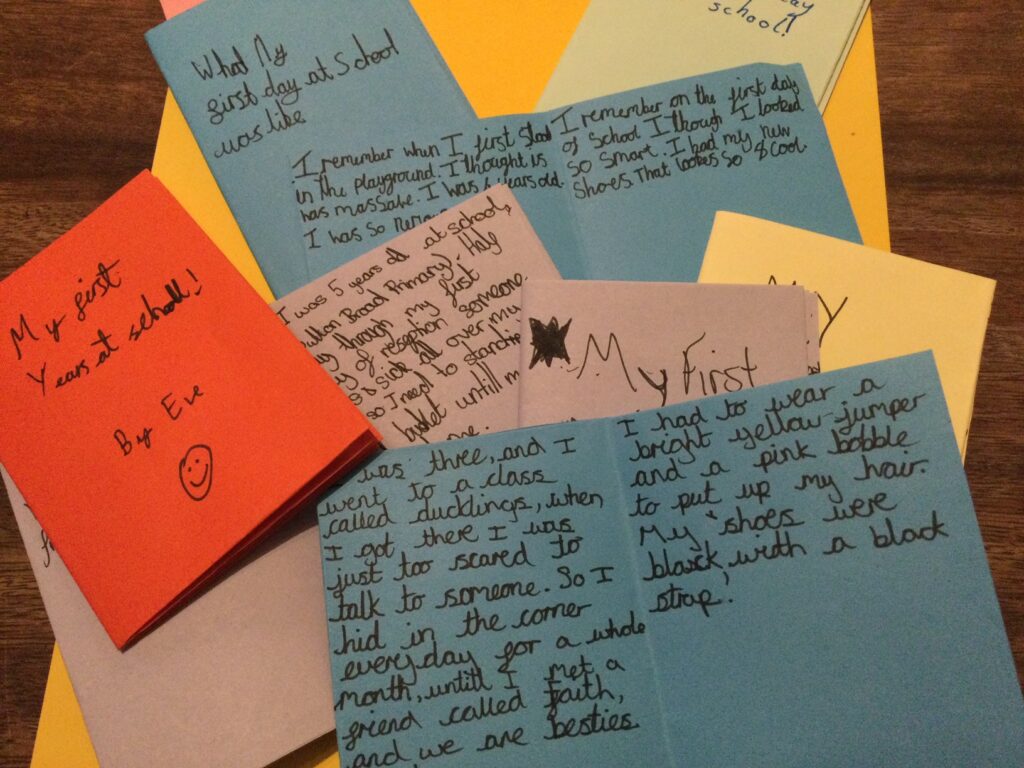 What My
first day at School
was like
day
school!
I remember when I first stood
in the playground. I thought is
was massave. I was 4 years old.
I was so
I remember on the first day
of School I though I looked
so smart. I had my new
shoes. That lookes so cool.
My first
Years at school!
By Eve
I was 5 years old at school,
Broad Primary). Half
through my first
of reception someone
side all over my
so I need to
untill
My First
MY
was three, and I
went to a class
called ducklings, when
I got there I was
just too scared to
talk to someone. So I
hid in the corner
everyday for a whole
month, untill I met a
friend called Faith,
and we are besties.
I had to wear a
bright yellow jumper
and a pink bobble
to put up my hair.
My shoes were
black with a black
strap!